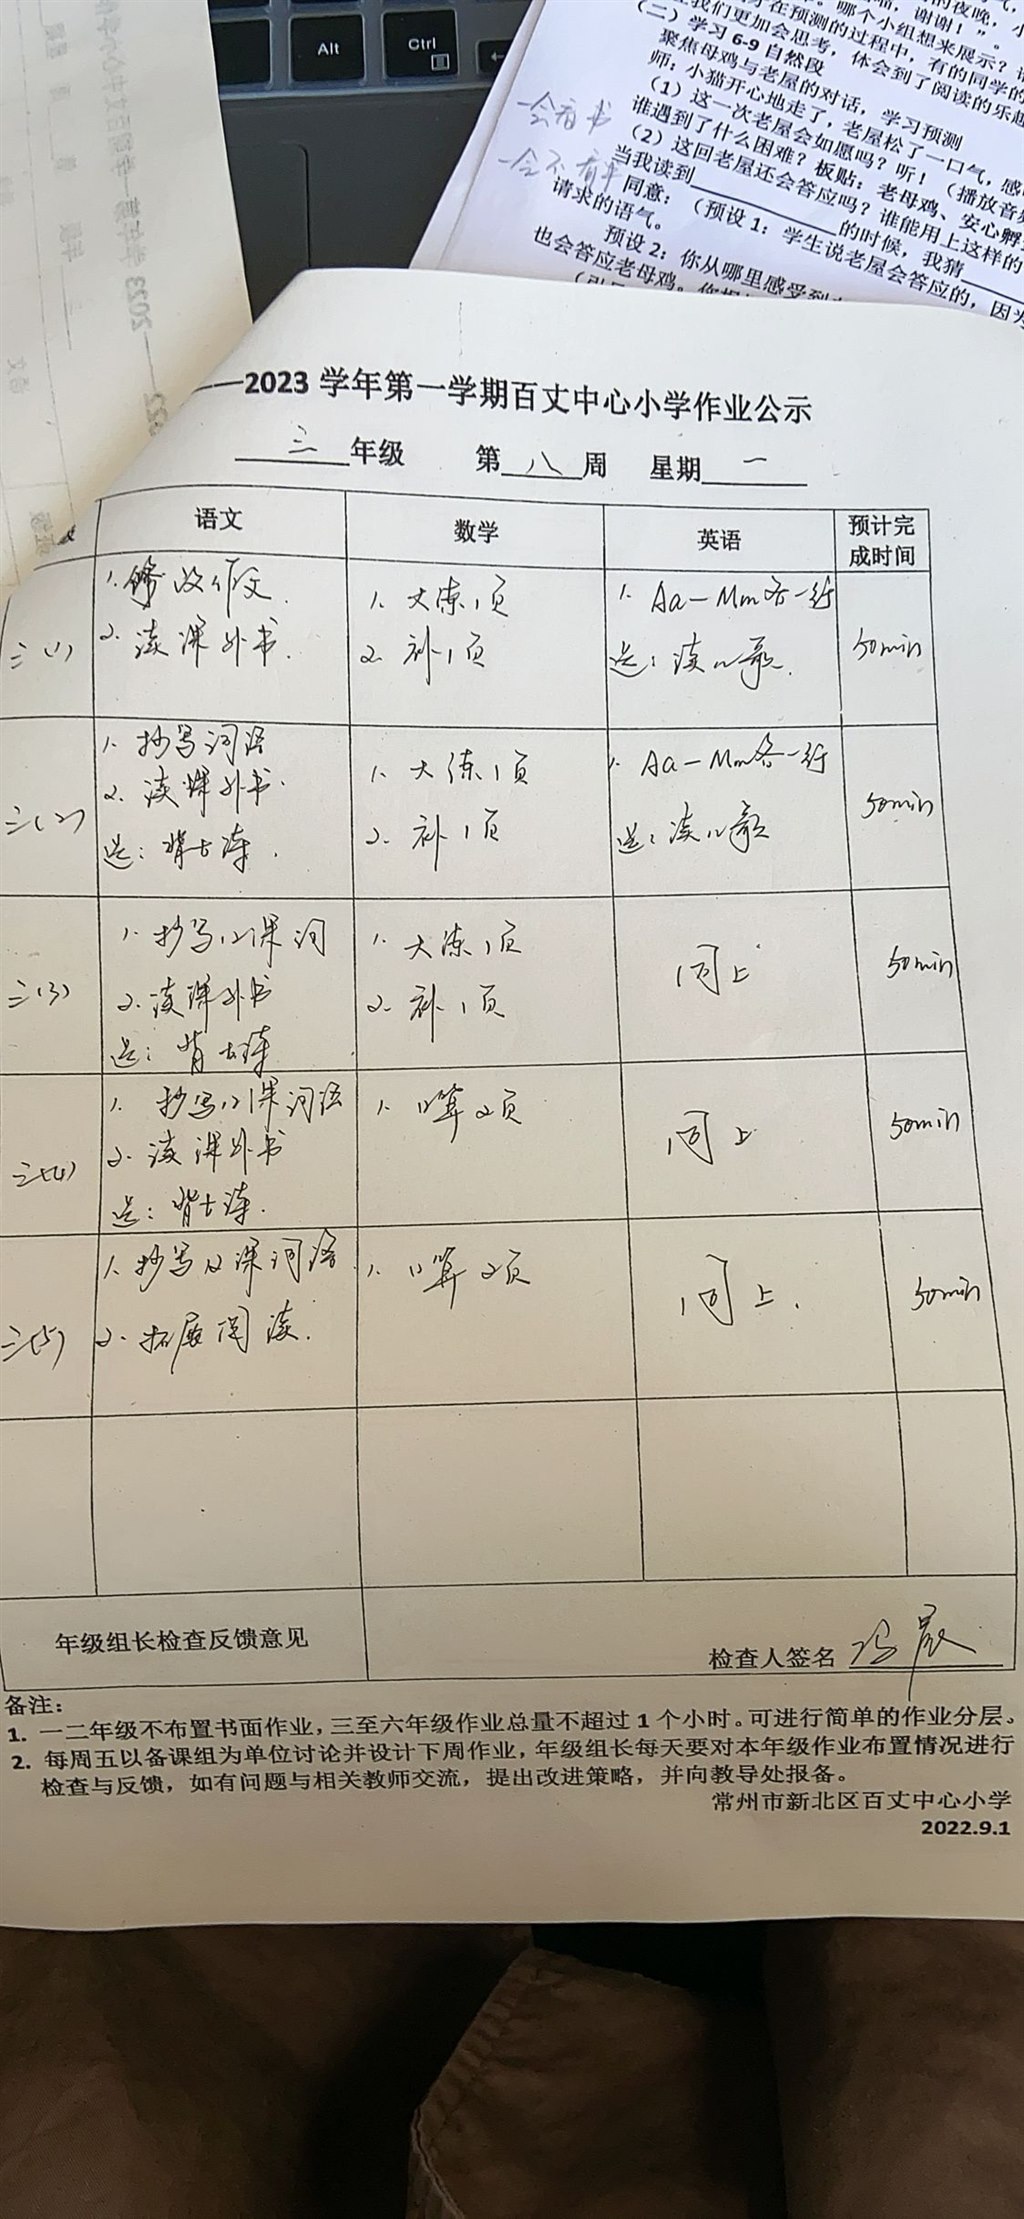 Alt
Ctrl
哪个小组想来展示？
我们更加会思考，体会到了阅读的乐趣
（二）学习 6-9 自然段
聚焦母鸡与老屋的对话，学习预测
师：小猫开心地走了，老屋松了一口气，感
（1）这一次老屋会如愿吗？听！（播放音频
谁遇到了什么困难？板贴：老母鸡、安心孵
（2）这回老屋还会答应吗？谁能用上这样的
当我读到 的时候，我猜
同意：（预设 1：学生说老屋会答应的，因为
请求的语气。
预设 2：你从哪里感受到
也会答应老母鸡。
一会看书
一会不看书
——2023 学年第一学期百丈中心小学作业公示
三 年级 第 八 周 星期 一
语文 数学 英语 预计完成时间
三(1)
1. 修改作文.
2. 读课外书.
1. 大练1页
2. 补1页
1. Aa-Mm各一行
选: 读儿歌.
50min
三(2)
1. 抄写词语
2. 读课外书.
选: 背七律.
1. 大练1页
2. 补1页
1. Aa-Mm各一行
选: 读儿歌
50min
三(3)
1. 抄写12课词
2. 读课外书
选: 背七律
1. 大练1页
2. 补1页
同上
50min
三(4)
1. 抄写12课词语
2. 读课外书
选: 背七律.
1. 口算2页
同上
50min
三(5)
1. 抄写12课词语
2. 拓展阅读.
1. 口算2页
同上.
50min
年级组长检查反馈意见
检查人签名
备注：
1. 一二年级不布置书面作业，三至六年级作业总量不超过 1 个小时。可进行简单的作业分层。
2. 每周五以备课组为单位讨论并设计下周作业，年级组长每天要对本年级作业布置情况进行
检查与反馈，如有问题与相关教师交流，提出改进策略，并向教导处报备。
常州市新北区百丈中心小学
2022.9.1